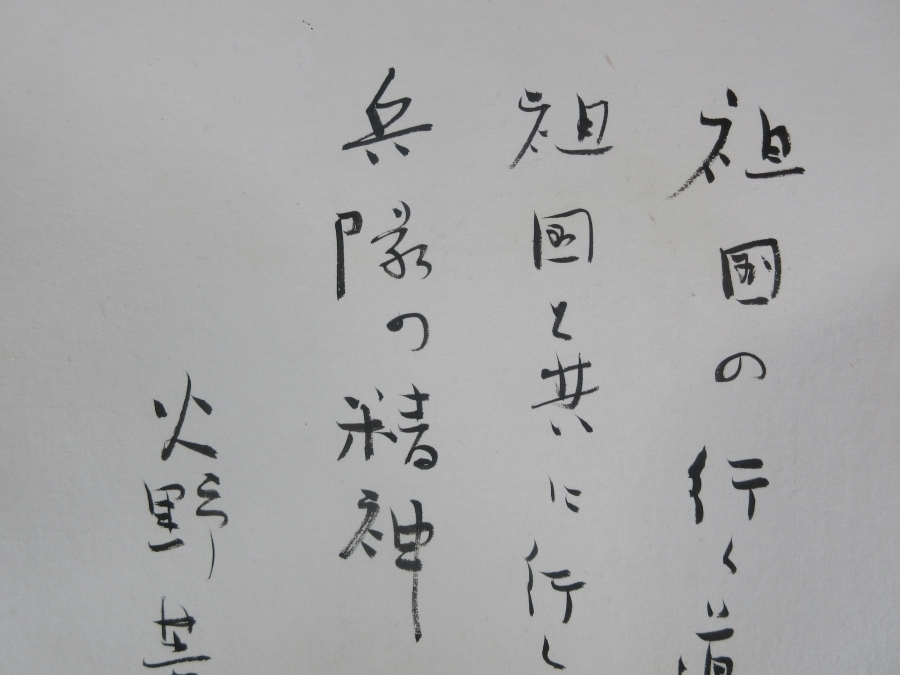 祖国の行く道
祖国と共に行く
兵隊の精神
火野葦